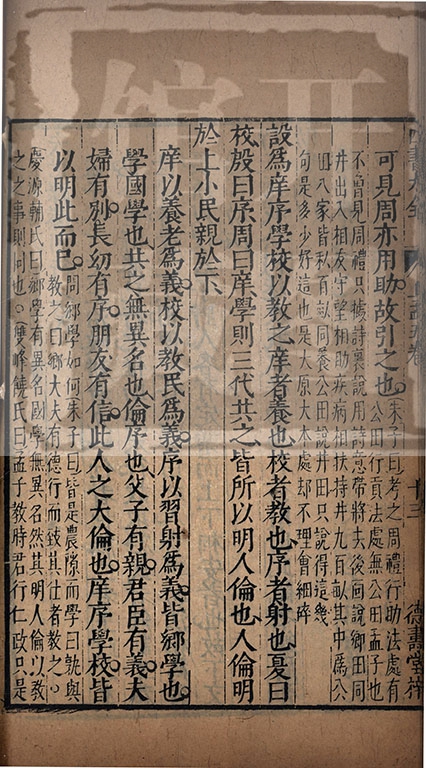 十三
德壽堂梓
可見周亦用助故引之也
朱子曰考之周禮行助法處有
公田行貢法處無公田孟子也
不曾見周禮只據詩裏說用詩意帶將去後面說鄉田同
井出入相友守望相助疾病相扶持井九百畝其中爲公
田八家皆私百畝同養公田說井田只說得這幾
句是多少好這也是大原大本處却不理會細碎
設爲庠序學校以教之庠者養也校者教也序者射也夏曰
校殷曰序周曰庠學則三代共之皆所以明人倫也人倫明
於上小民親於下
庠以養老爲義校以教民爲義序以習射爲義皆鄉學也
學國學也共之無異名也倫序也父子有親君臣有義夫
婦有別長幼有序朋友有信此人之大倫也庠序學校皆
以明此而已
問鄉學如何朱子曰皆是農隙而學曰孰與
教之曰鄉大夫有德行而致其仕者教之
慶源輔氏曰鄉學有異名國學無異名然其明人倫以教
之之事則同也雙峰饒氏曰孟子教時君行仁政只是